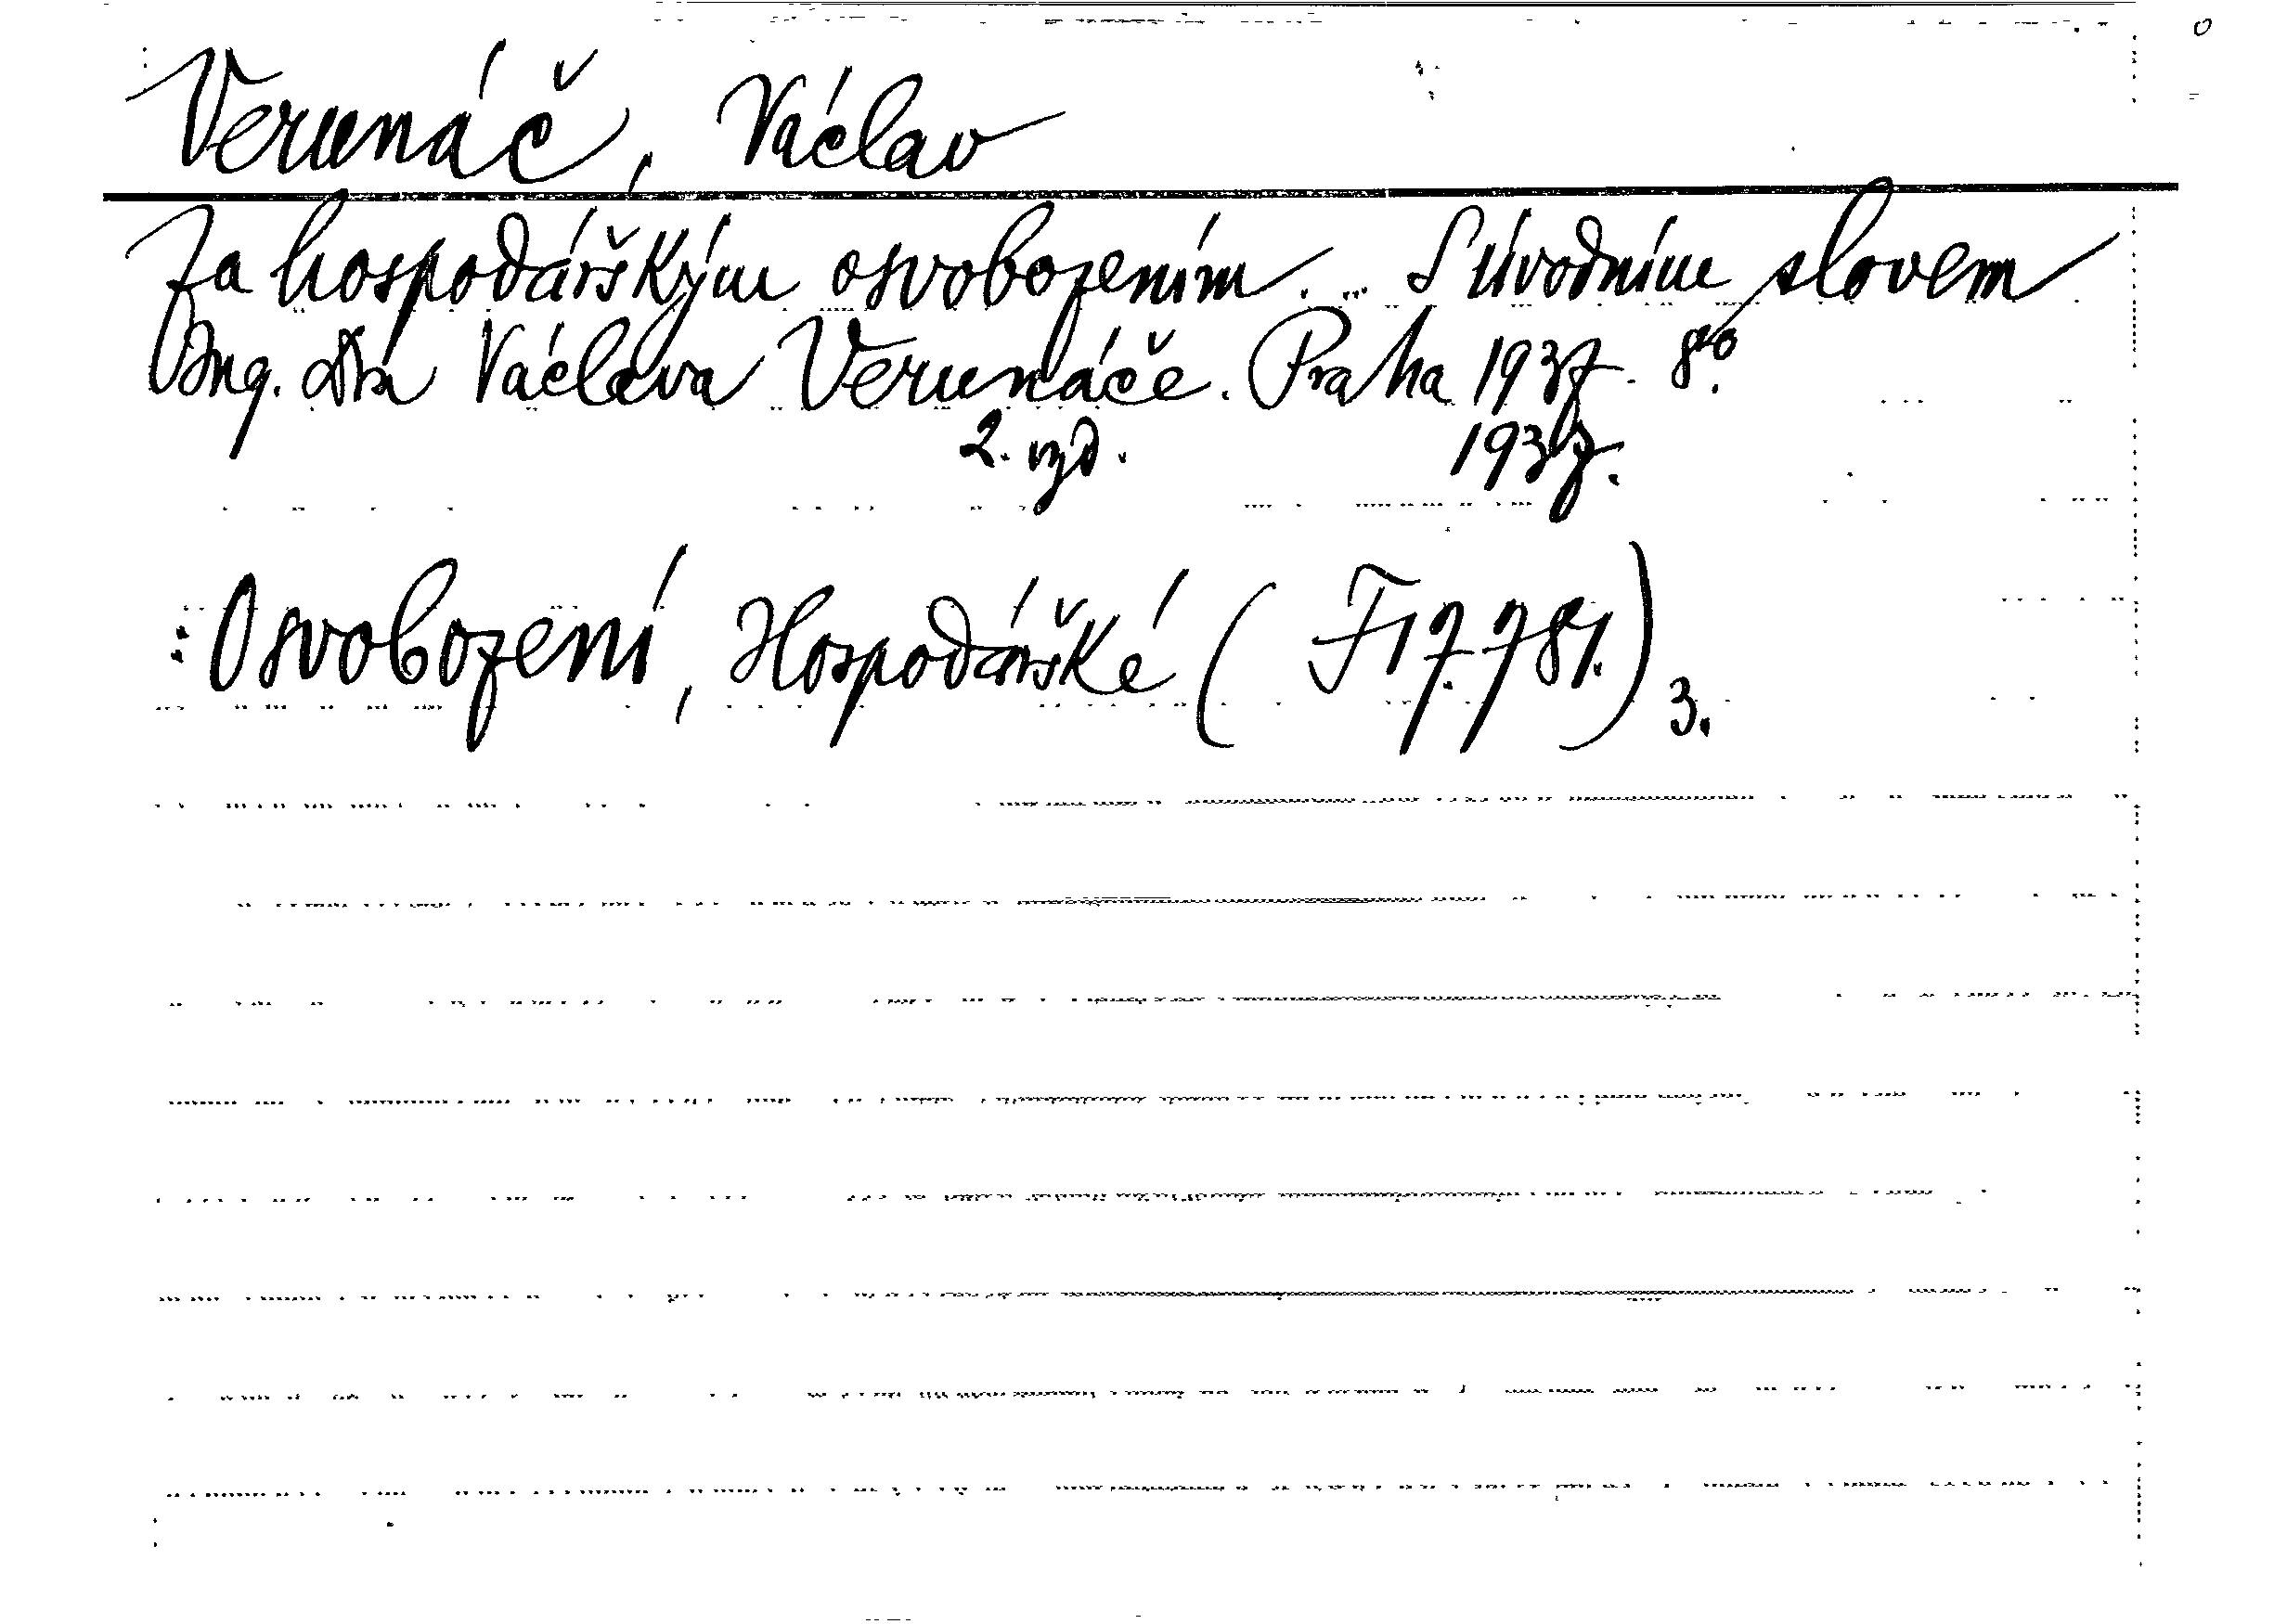 Verunáč, Václav
Za hospodářským osvobozením. .. S úvodním slovem
Ing. Dra Václava Verunáče. Praha 1937. 8vo.
2. vyd. 1937.
: Osvobození, Hospodářské ( F 17.781.) 3.